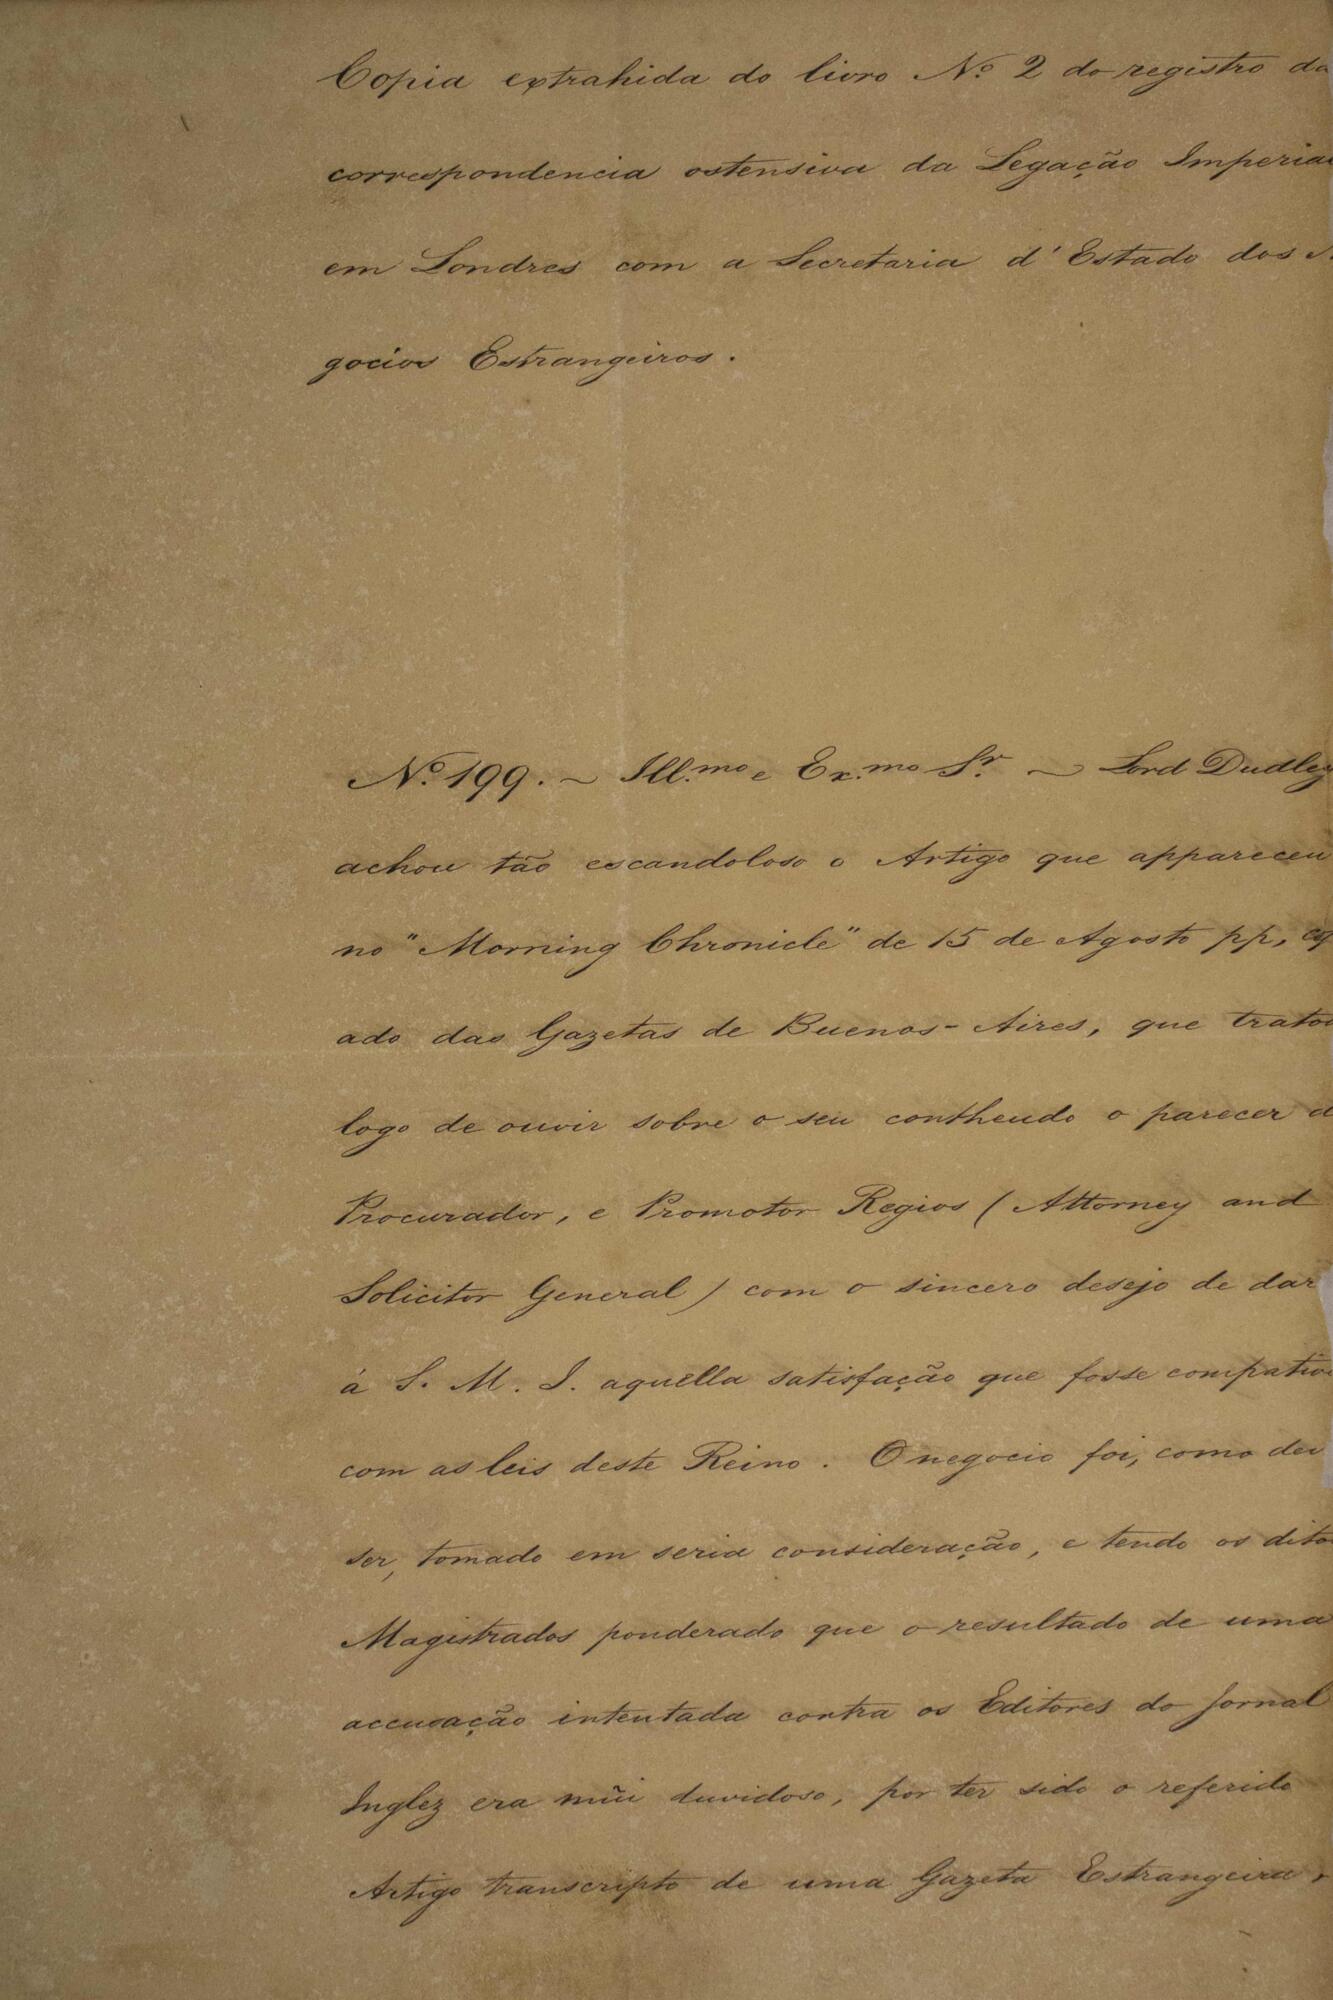 Copia extrahida do livro Nº 2 do registro da
correspondencia ostensiva da Legação Imperial
em Londres com a Secretaria d'Estado dos
gocios Estrangeiros.
Nº 199. ~ Ill.mo e Ex.mo Sr. ~ Lord Dudley
achou tão escandoloso o Artigo que appareceu
no "Morning Chronicle" de 15 de Agosto pp,
ado das Gazetas de Buenos-Aires, que tratou
logo de ouvir sobre o seu contheudo o parecer
Procurador, e Promotor Regios (Attorney and
Solicitor General) com o sincero desejo de dar
á S. M. I. aquella satisfação que fosse compativ
com as leis deste Reino. O negocio foi, como
ser, tomado em seria consideração, e tendo os dito
Magistrados ponderado que o resultado de uma
accusação intentada contra os Editores do Jornal
Inglez era mũi duvidoso, por ter sido o referido
Artigo transcripto de uma Gazeta Estrangeira,